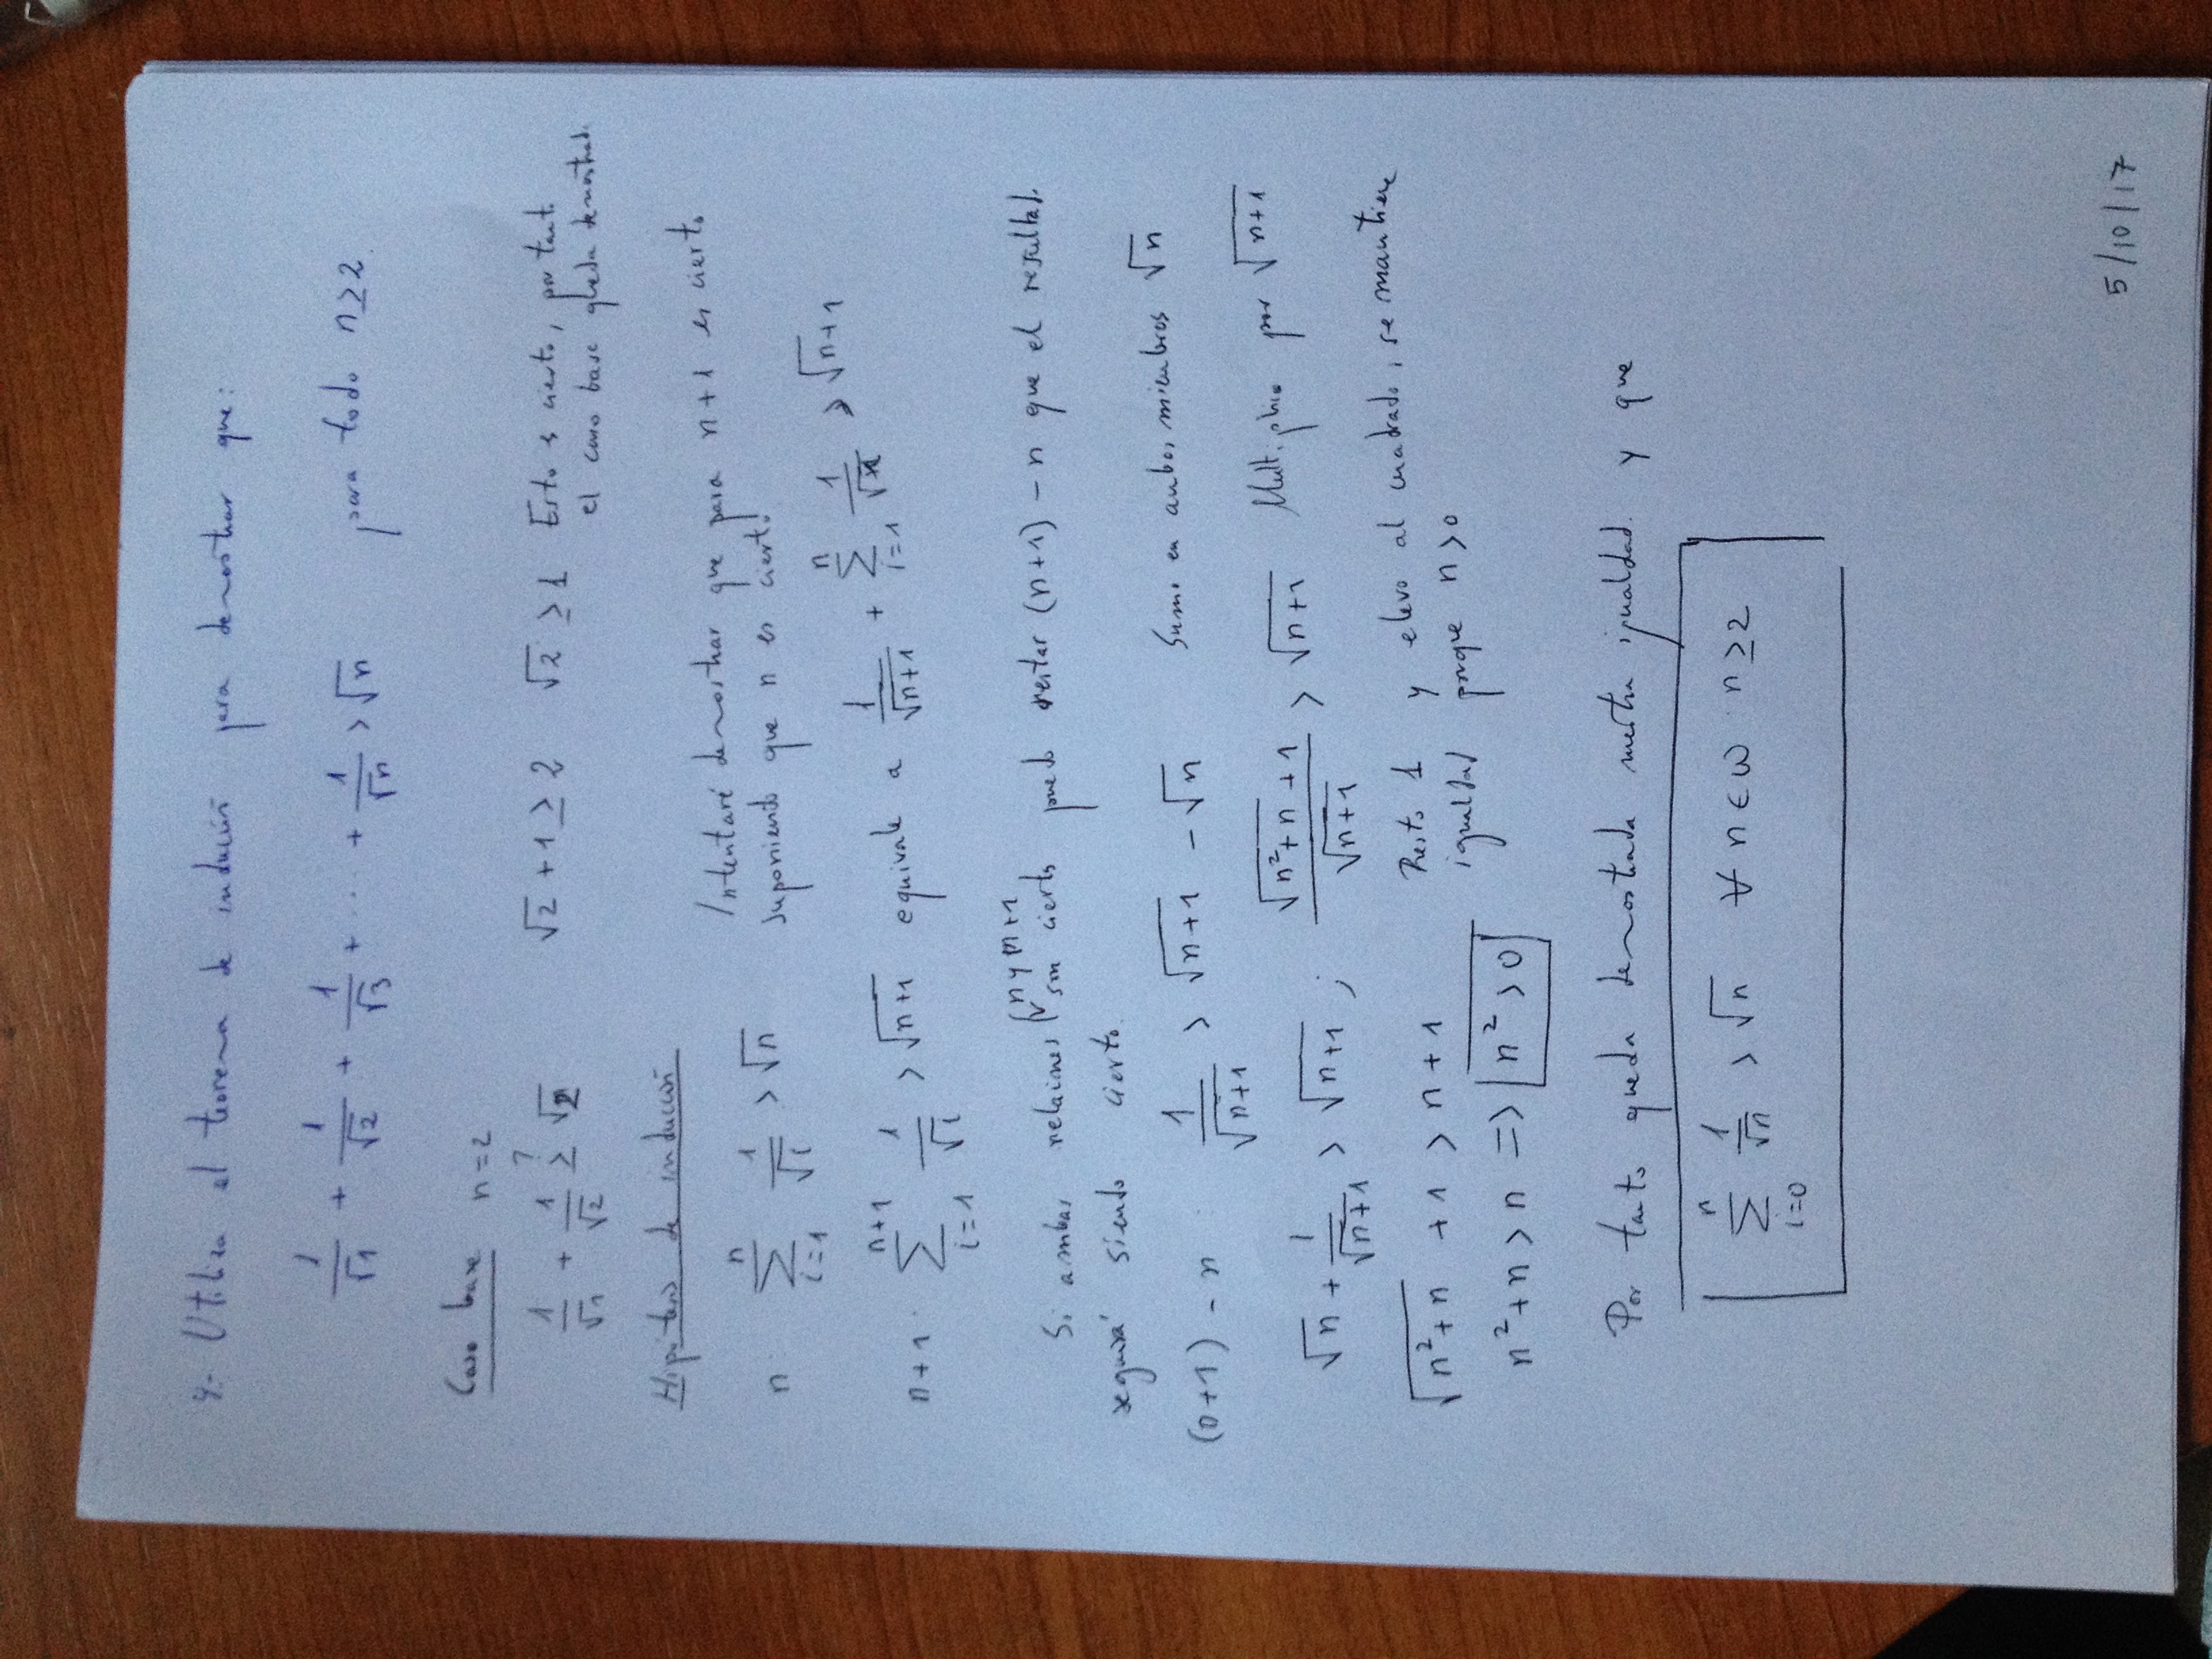 4.- Utiliza el teorema de inducción para demostrar que:
1/√1 + 1/√2 + 1/√3 + ... + 1/√n > √n para todo n≥2.
Caso base n=2
1/√1 + 1/√2 ≥? √2 √2 +1 ≥ 2 √2 ≥ 1 Esto es cierto, por tanto
el caso base queda demostrado.
Hipótesis de inducción
Intentaré demostrar que para n+1 es cierto
n: ∑_{i=1}^{n} 1/√i > √n suponiendo que n es cierto
n+1: ∑_{i=1}^{n+1} 1/√i > √(n+1) equivale a 1/√(n+1) + ∑_{i=1}^{n} 1/√i > √(n+1)
Si ambas relaciones (n y n+1 son cierto puedo restar (n+1) - n que el resultado
seguirá siendo cierto.
(n+1) - n : 1/√(n+1) > √(n+1) - √n Sumo en ambos miembros √n
√n + 1/√(n+1) > √(n+1) ; (√(n²+n) + 1)/√(n+1) > √(n+1) Multiplico por √(n+1)
√(n²+n) + 1 > n + 1 Resto 1 y elevo al cuadrado, se mantiene
igualdad porque n>0
n²+n > n => n² > 0
Por tanto queda demostrada nuestra igualdad. y que
∑_{i=0}^{n} 1/√n > √n ∀ n ∈ ω n ≥ 2
5/10/17